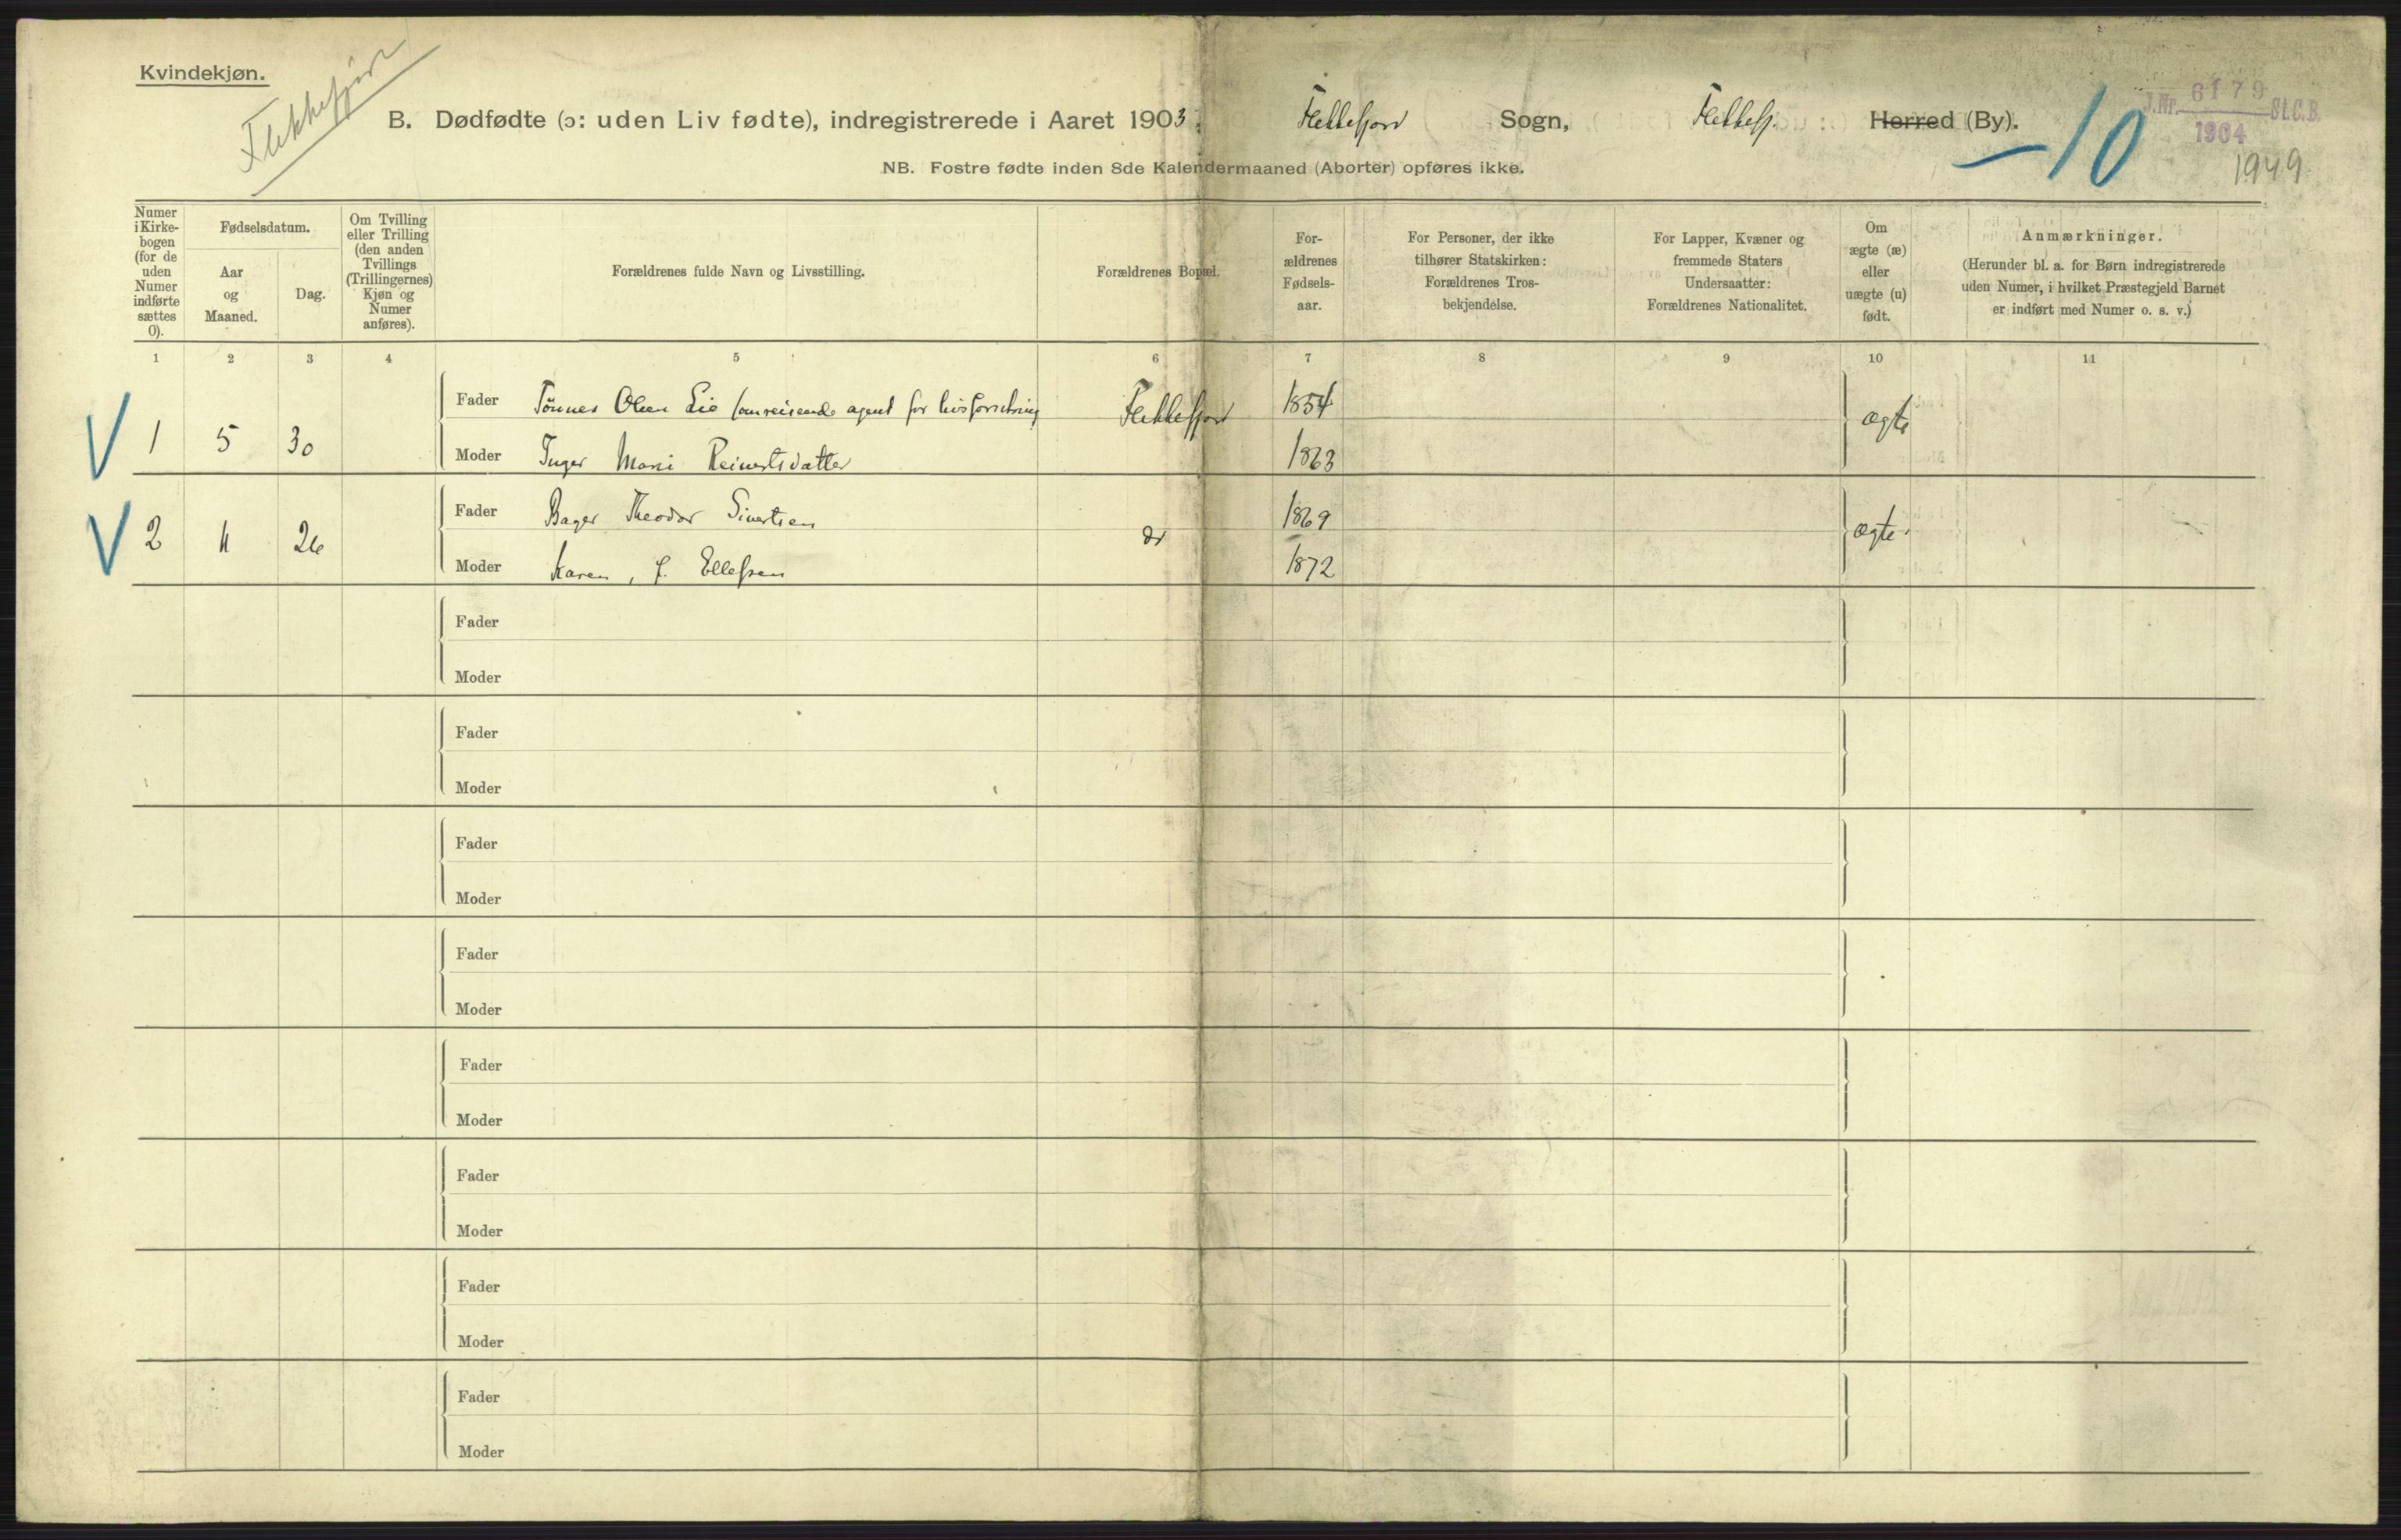 Kvindekjøn.
Flekkefjord
B. Dødfødte (ɔ: uden Liv fødte), indregistrerede i Aaret 1903. Flekkefjord Sogn, Flekkefj. Herred (By).
J.Nr. 6179 St.C.B.
1904
-10
1949
NB. Fostre fødte inden 8de Kalendermaaned (Aborter) opføres ikke.
Numer i Kirke-bogen (for de uden Numer indførte sættes 0).
Fødselsdatum.
Aar og Maaned.
Dag.
Om Tvilling eller Trilling (den anden Tvillings (Trillingernes) Kjøn og Numer anføres).
Forældrenes fulde Navn og Livsstilling.
Forældrenes Bopæl.
For-ældrenes Fødsels-aar.
For Personer, der ikke tilhører Statskirken: Forældrenes Tros-bekjendelse.
For Lapper, Kvæner og fremmede Staters Undersaatter: Forældrenes Nationalitet.
Om ægte (æ) eller uægte (u) født.
Anmærkninger.
(Herunder bl. a. for Børn indregistrerede uden Numer, i hvilket Præstegjeld Barnet er indført med Numer o. s. v.)
1 2 3 4 5 6 7 8 9 10 11
V 1 5 30 Fader Tönnes Olsen Lie (omreisende agent for livsforsikring Flekkefjord 1854 ægte
Moder Inger Marie Reinertsdatter 1863
V 2 11 26 Fader Bager Theodor Sivertsen do 1869 ægte.
Moder Karen, f. Ellefsen 1872
Fader
Moder
Fader
Moder
Fader
Moder
Fader
Moder
Fader
Moder
Fader
Moder
Fader
Moder
Fader
Moder